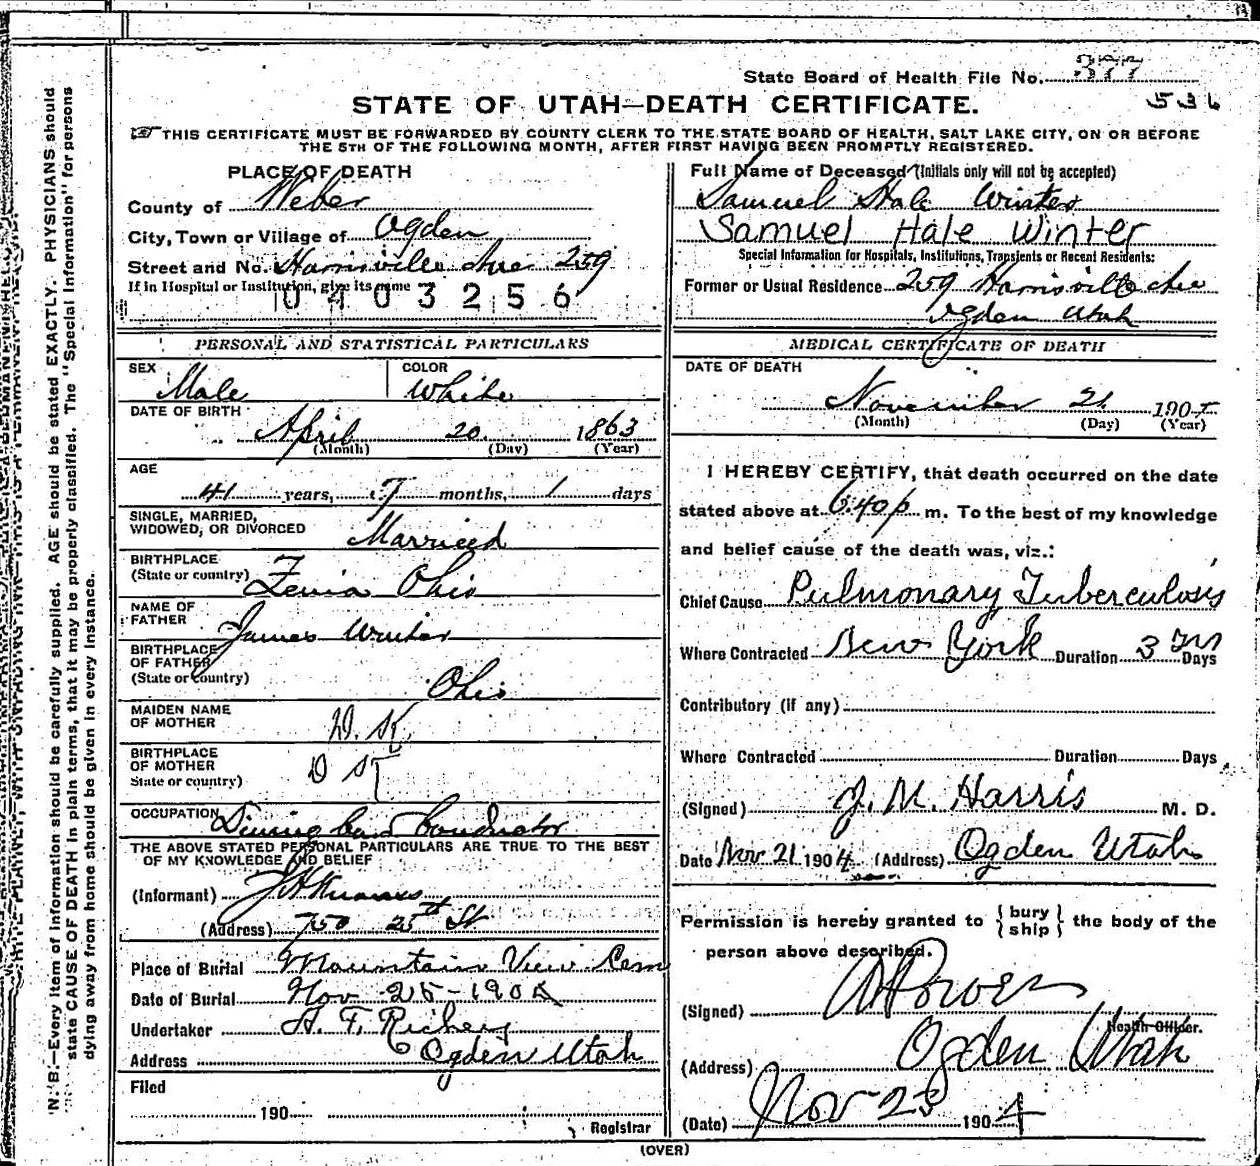 State Board of Health File No. 377
536
STATE OF UTAH—DEATH CERTIFICATE.
THIS CERTIFICATE MUST BE FORWARDED BY COUNTY CLERK TO THE STATE BOARD OF HEALTH, SALT LAKE CITY, ON OR BEFORE
THE 5TH OF THE FOLLOWING MONTH, AFTER FIRST HAVING BEEN PROMPTLY REGISTERED.
PLACE OF DEATH
County of Weber
City, Town or Village of Ogden
Street and No. Harrisville Ave 259
If in Hospital or Institution, give its name
0403256
Full Name of Deceased (Initials only will not be accepted)
Samuel Hale Winter
Samuel Hale Winter
Special Information for Hospitals, Institutions, Transients or Recent Residents:
Former or Usual Residence 259 Harrisville Ave
Ogden Utah
PERSONAL AND STATISTICAL PARTICULARS
SEX
Male
COLOR
White
DATE OF BIRTH
April 20 1863
(Month) (Day) (Year)
AGE
41 years, 7 months, 1 days
SINGLE, MARRIED,
WIDOWED, OR DIVORCED Married
BIRTHPLACE
(State or country) Zenia Ohio
NAME OF
FATHER James Winter
BIRTHPLACE
OF FATHER
(State or Country) Ohio
MAIDEN NAME
OF MOTHER D. K.
BIRTHPLACE
OF MOTHER D K
State or country)
OCCUPATION Dining Car Conductor
THE ABOVE STATED PERSONAL PARTICULARS ARE TRUE TO THE BEST
OF MY KNOWLEDGE AND BELIEF
(Informant)
(Address) 750 25th St
Place of Burial Mountain View Cem
Date of Burial Nov 25-190
Undertaker
Address Ogden Utah
Filed
190
Registrar
MEDICAL CERTIFICATE OF DEATH
DATE OF DEATH
November 21 190
(Month) (Day) (Year)
I HEREBY CERTIFY, that death occurred on the date
stated above at 6:40 p m. To the best of my knowledge
and belief cause of the death was, viz.:
Chief Cause Pulmonary Tuberculosis
Where Contracted New York Duration 3 Days
Contributory (if any)
Where Contracted Duration Days
(Signed) J. M. Harris M. D.
Date Nov 21 1904 (Address) Ogden Utah
Permission is hereby granted to { bury
ship } the body of the
person above described.
(Signed)
Health Officer.
(Address) Ogden Utah
(Date) Nov 23 1904
(OVER)
N. B.—Every item of information should be carefully supplied. AGE should be stated EXACTLY. PHYSICIANS should
state CAUSE OF DEATH in plain terms, that it may be properly classified. The "Special Information" for persons
dying away from home should be given in every instance.